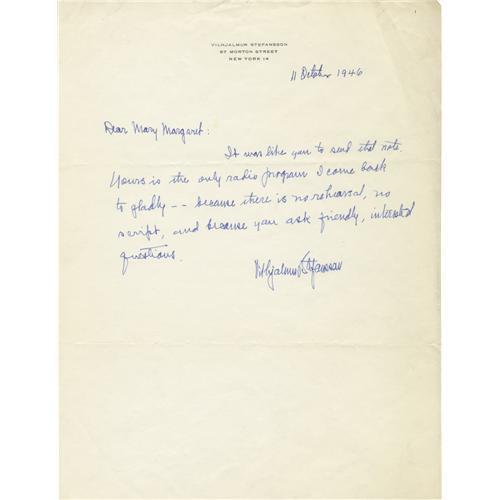 VILHJALMUR STEFANSSON
67 MORTON STREET
NEW YORK 14
11 October 1946
Dear Mary Margaret:
It was like you to send that note.
Yours is the only radio program I come back
to gladly -- because there is no rehearsal, no
script, and because you ask friendly, interested
questions.
Vilhjalmur Stefansson